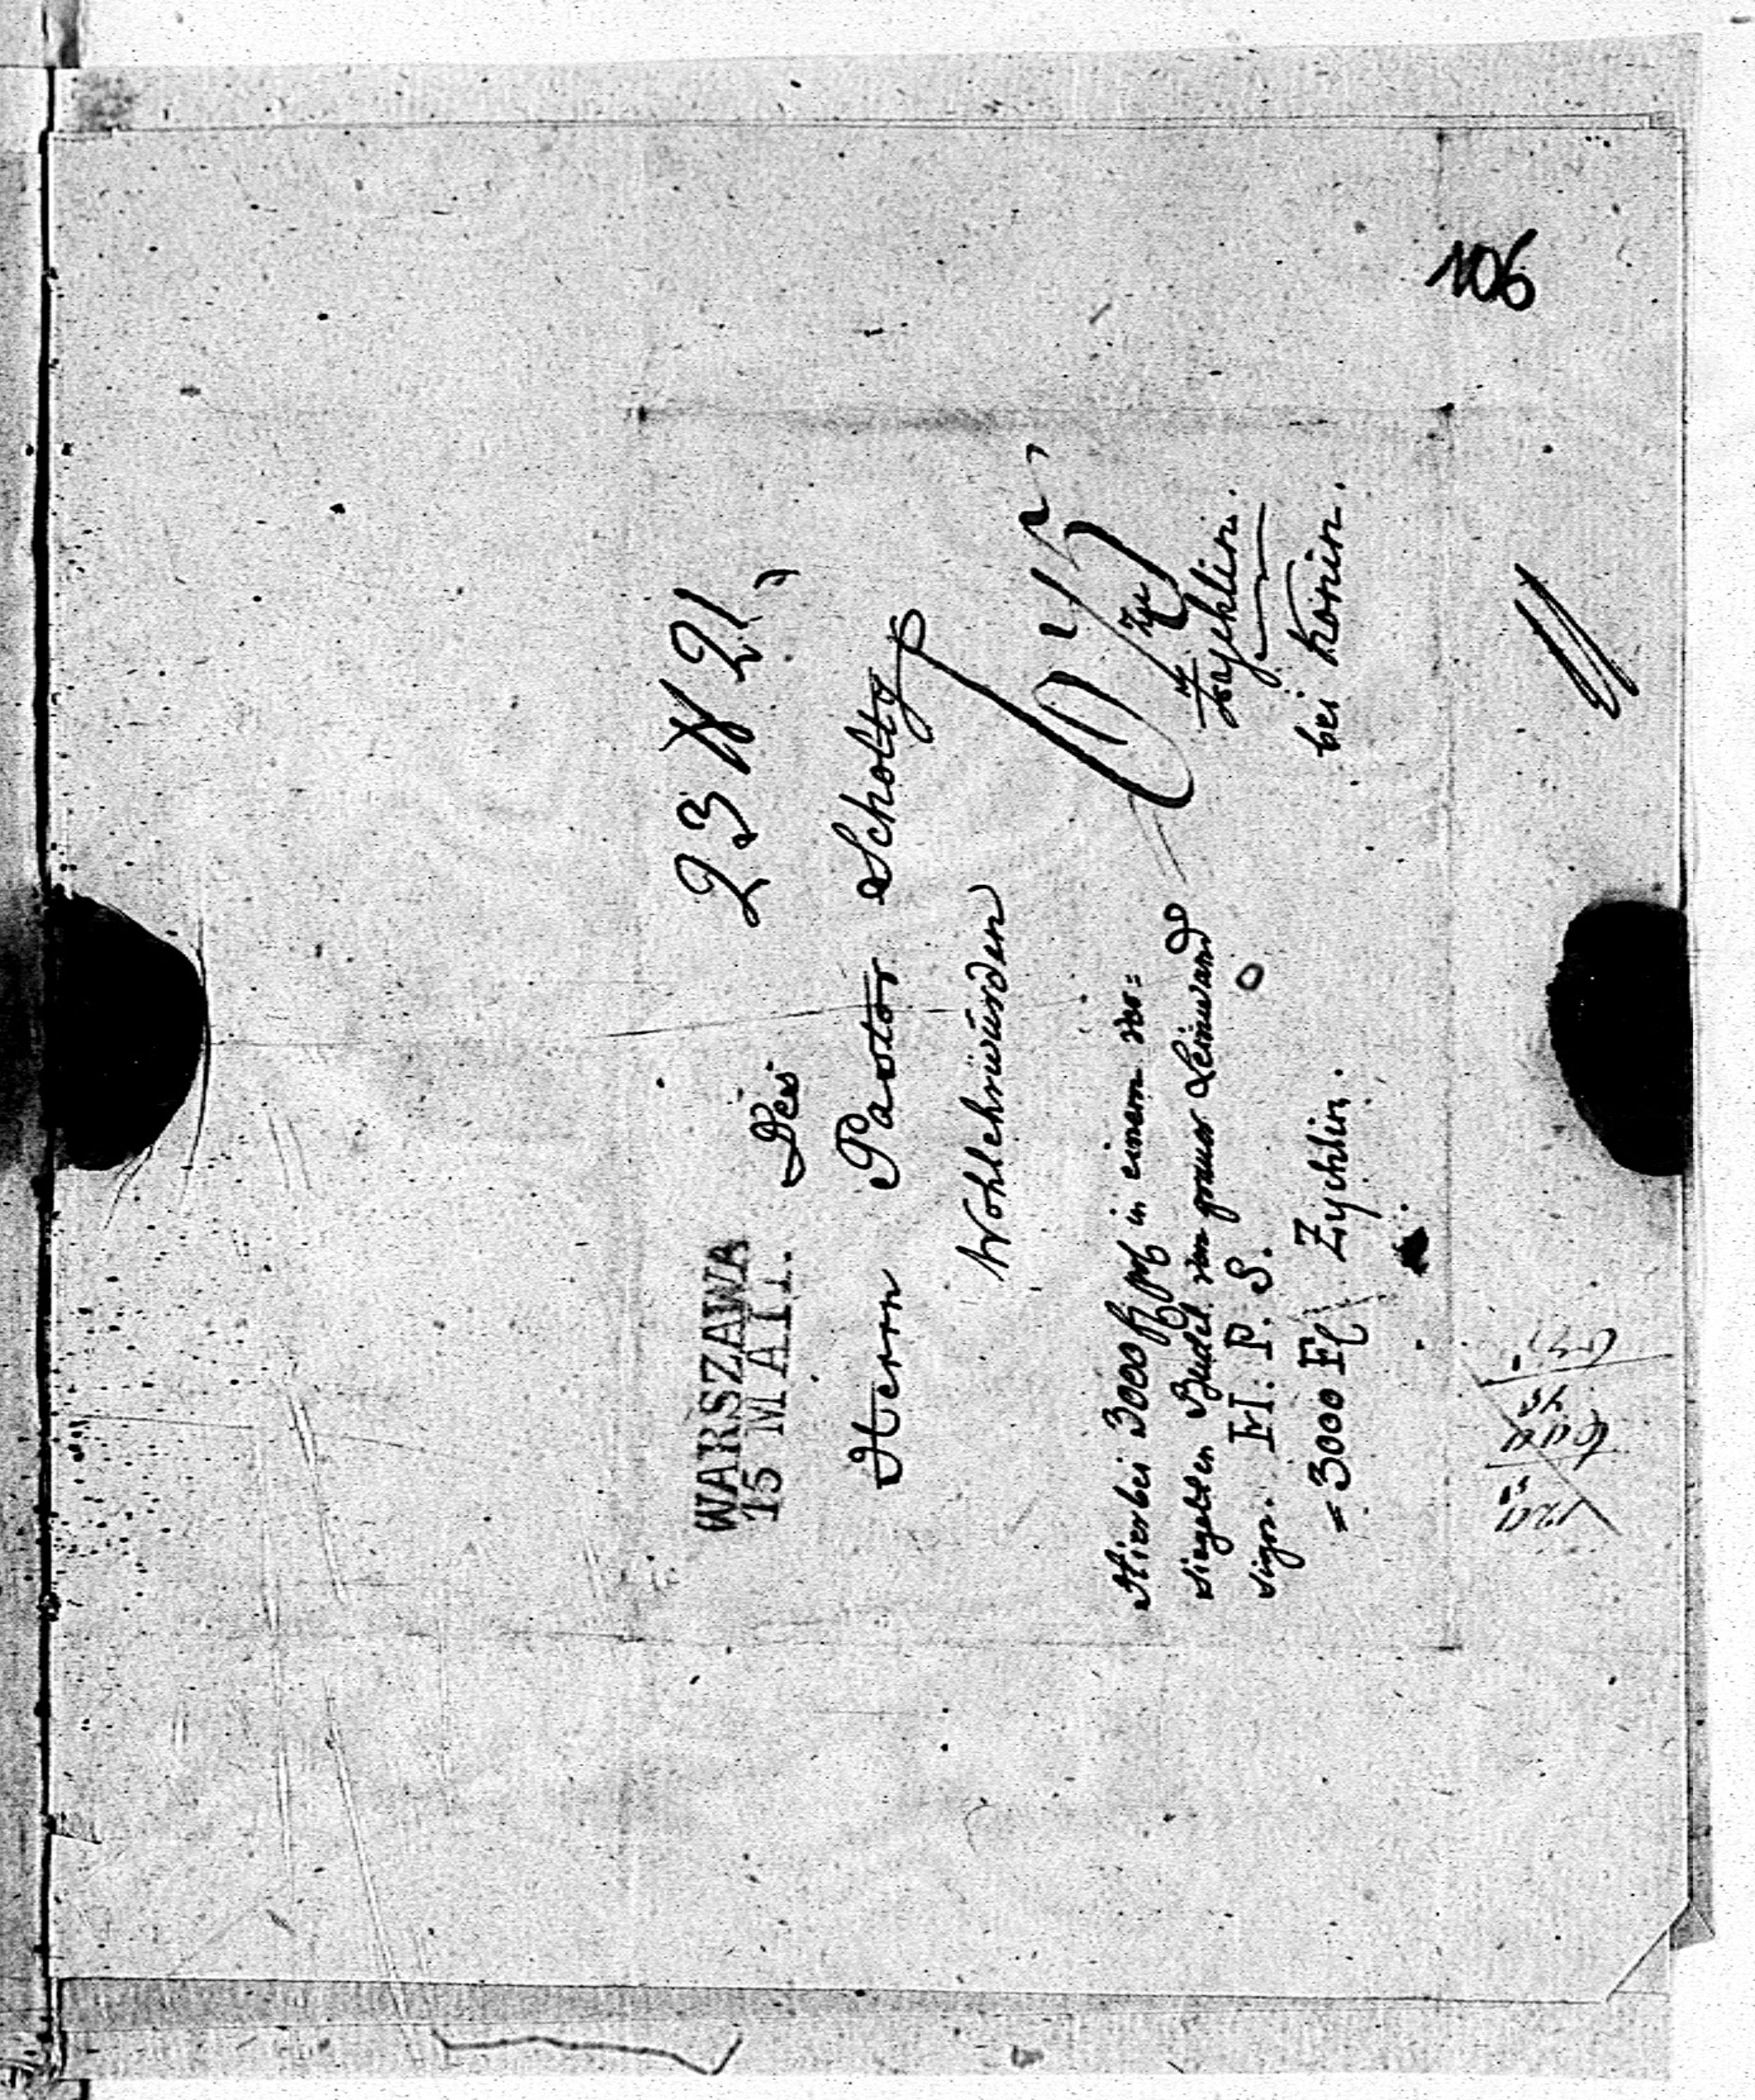 106
23 # 21
WARSZAWA
15 MAII.
Des
Herrn Pastor Scholtz
Wohlehrwürden
zu
Zychlin.
bei Konin.
Hierbei 3000 in einem ver=
siegelten Beutel von grauer Leinwand
sign. H. P. S.
= 3000 Fl Zychlin.